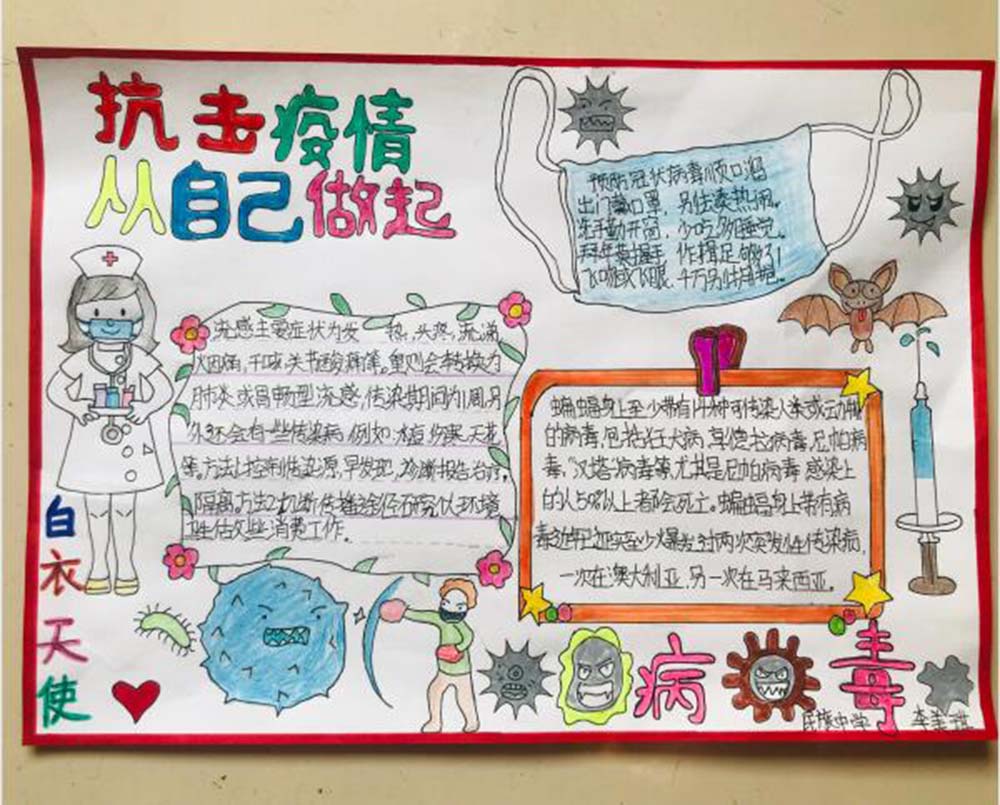 抗击疫情
从自己做起
预防冠状病毒顺口溜
出门戴口罩，别往凑热闹。
洗手勤开窗，少吃多睡觉。
拜年莫握手，作揖足够了！
飞吻或飞眼，千万别拥抱。
流感主要症状为发 热，头疼，流涕
干咳，关节酸痛等。重则会转换为
肺炎或胃肠型流感，传染期间为1周，另
外还会有一些传染病，例如，水痘，伤寒，天花
等。方法1.控制传染源，早发现，诊断报告治疗，
隔离。方法2.切断传播途径研究以环境
卫生估以些消费工作。
蝙蝠身上至少带有 种可传染人类或动物
的病毒，包括狂犬病，享德拉病毒，尼帕病
毒，"汉塔"病毒等，尤其是尼帕病毒，感染上
的人50%以上者都会死亡。蝙蝠身上带有病
毒 证实至少爆发过两次突发性传染病，
一次在澳大利亚，另一次在马来西亚。
白衣天使
病毒
民族中学 李美琪